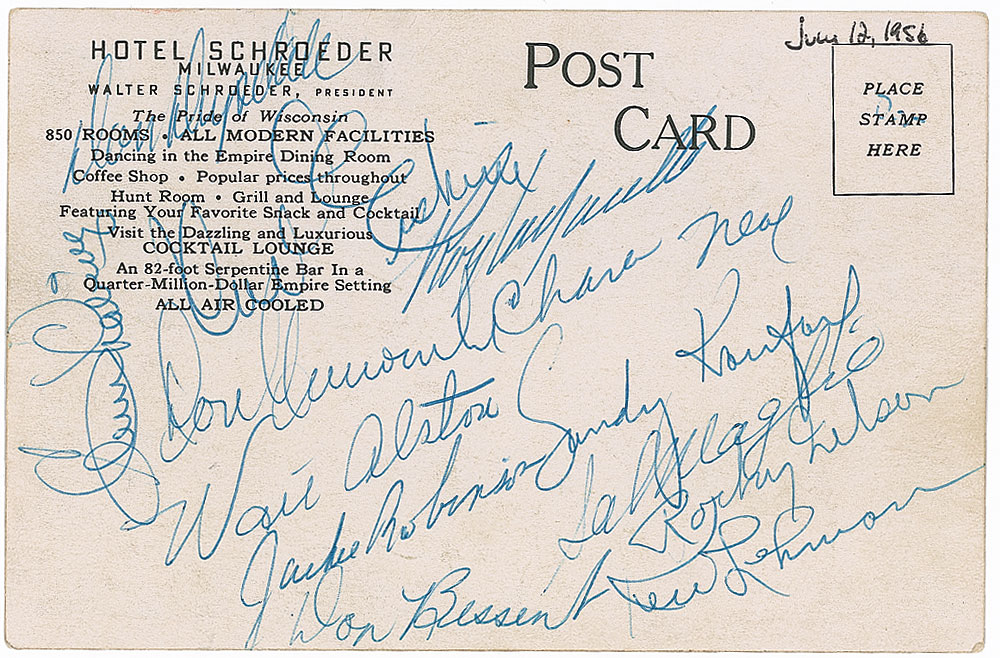 June 12, 1956
HOTEL SCHROEDER
MILWAUKEE
WALTER SCHROEDER, PRESIDENT
The Pride of Wisconsin
850 ROOMS • ALL MODERN FACILITIES
Dancing in the Empire Dining Room
Coffee Shop • Popular prices throughout
Hunt Room • Grill and Lounge
Featuring Your Favorite Snack and Cocktail
Visit the Dazzling and Luxurious
COCKTAIL LOUNGE
An 82-foot Serpentine Bar In a
Quarter-Million-Dollar Empire Setting
ALL AIR COOLED
POST
CARD
PLACE
STAMP
HERE
Don Drysdale
Roy Campanella
Charlie Neal
Don Demeter
Walt Alston
Sandy Koufax
Jackie Robinson
Sal Maglie
Rocky Nelson
Don Bessent
Ken Lehman